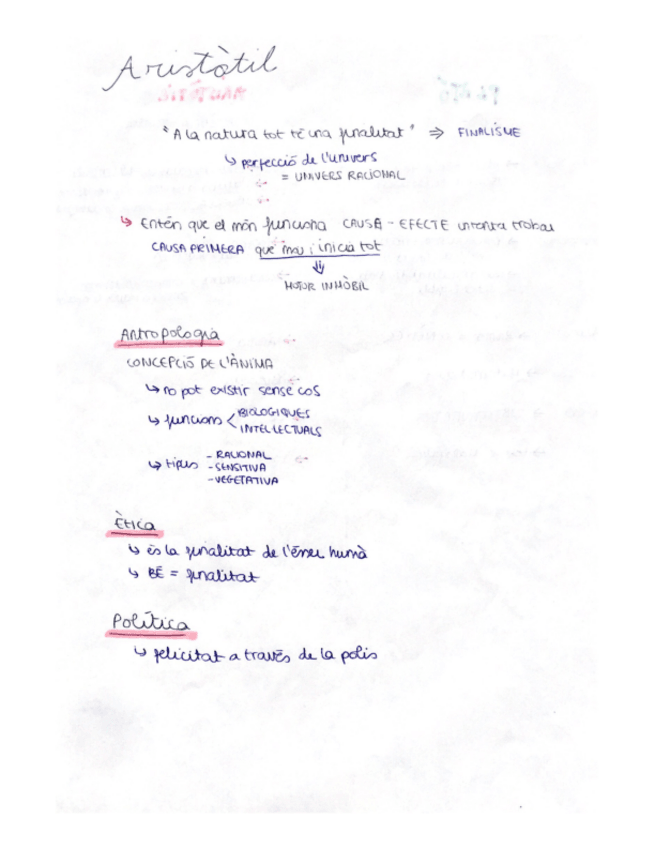 Aristòtil
"A la natura tot té una finalitat" ⇒ FINALISME
↳ perfecció de l'univers
= UNIVERS RACIONAL
↳ Entén que el món funciona CAUSA - EFECTE intenta trobar
CAUSA PRIMERA que mou i inicia tot
⇓
MOTOR IMMÒBIL
Antropologia
CONCEPCIÓ DE L'ÀNIMA
↳ no pot existir sense cos
↳ funcions < BIOLOGIQUES
INTEL·LECTUALS
↳ tipus - RACIONAL
- SENSITIVA
- VEGETATIVA
Ètica
↳ és la finalitat de l'ésser humà
↳ BÉ = finalitat
Política
↳ felicitat a través de la polis